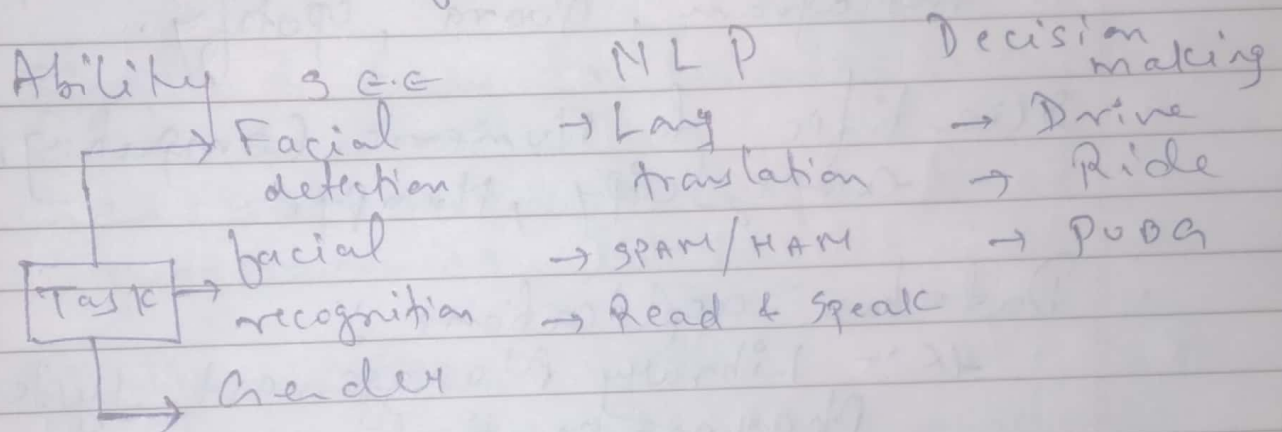 Ability SEE NLP Decision making
→ Facial detection → Lang translation → Drive
→ Ride
Task → facial recognition → SPAM/HAM → PUBG
→ Read & Speak
→ Gender